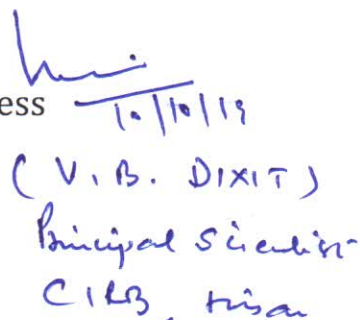 ess
10/10/19
( V. B. DIXIT )
Principal Scientist
CIRB, Hisar